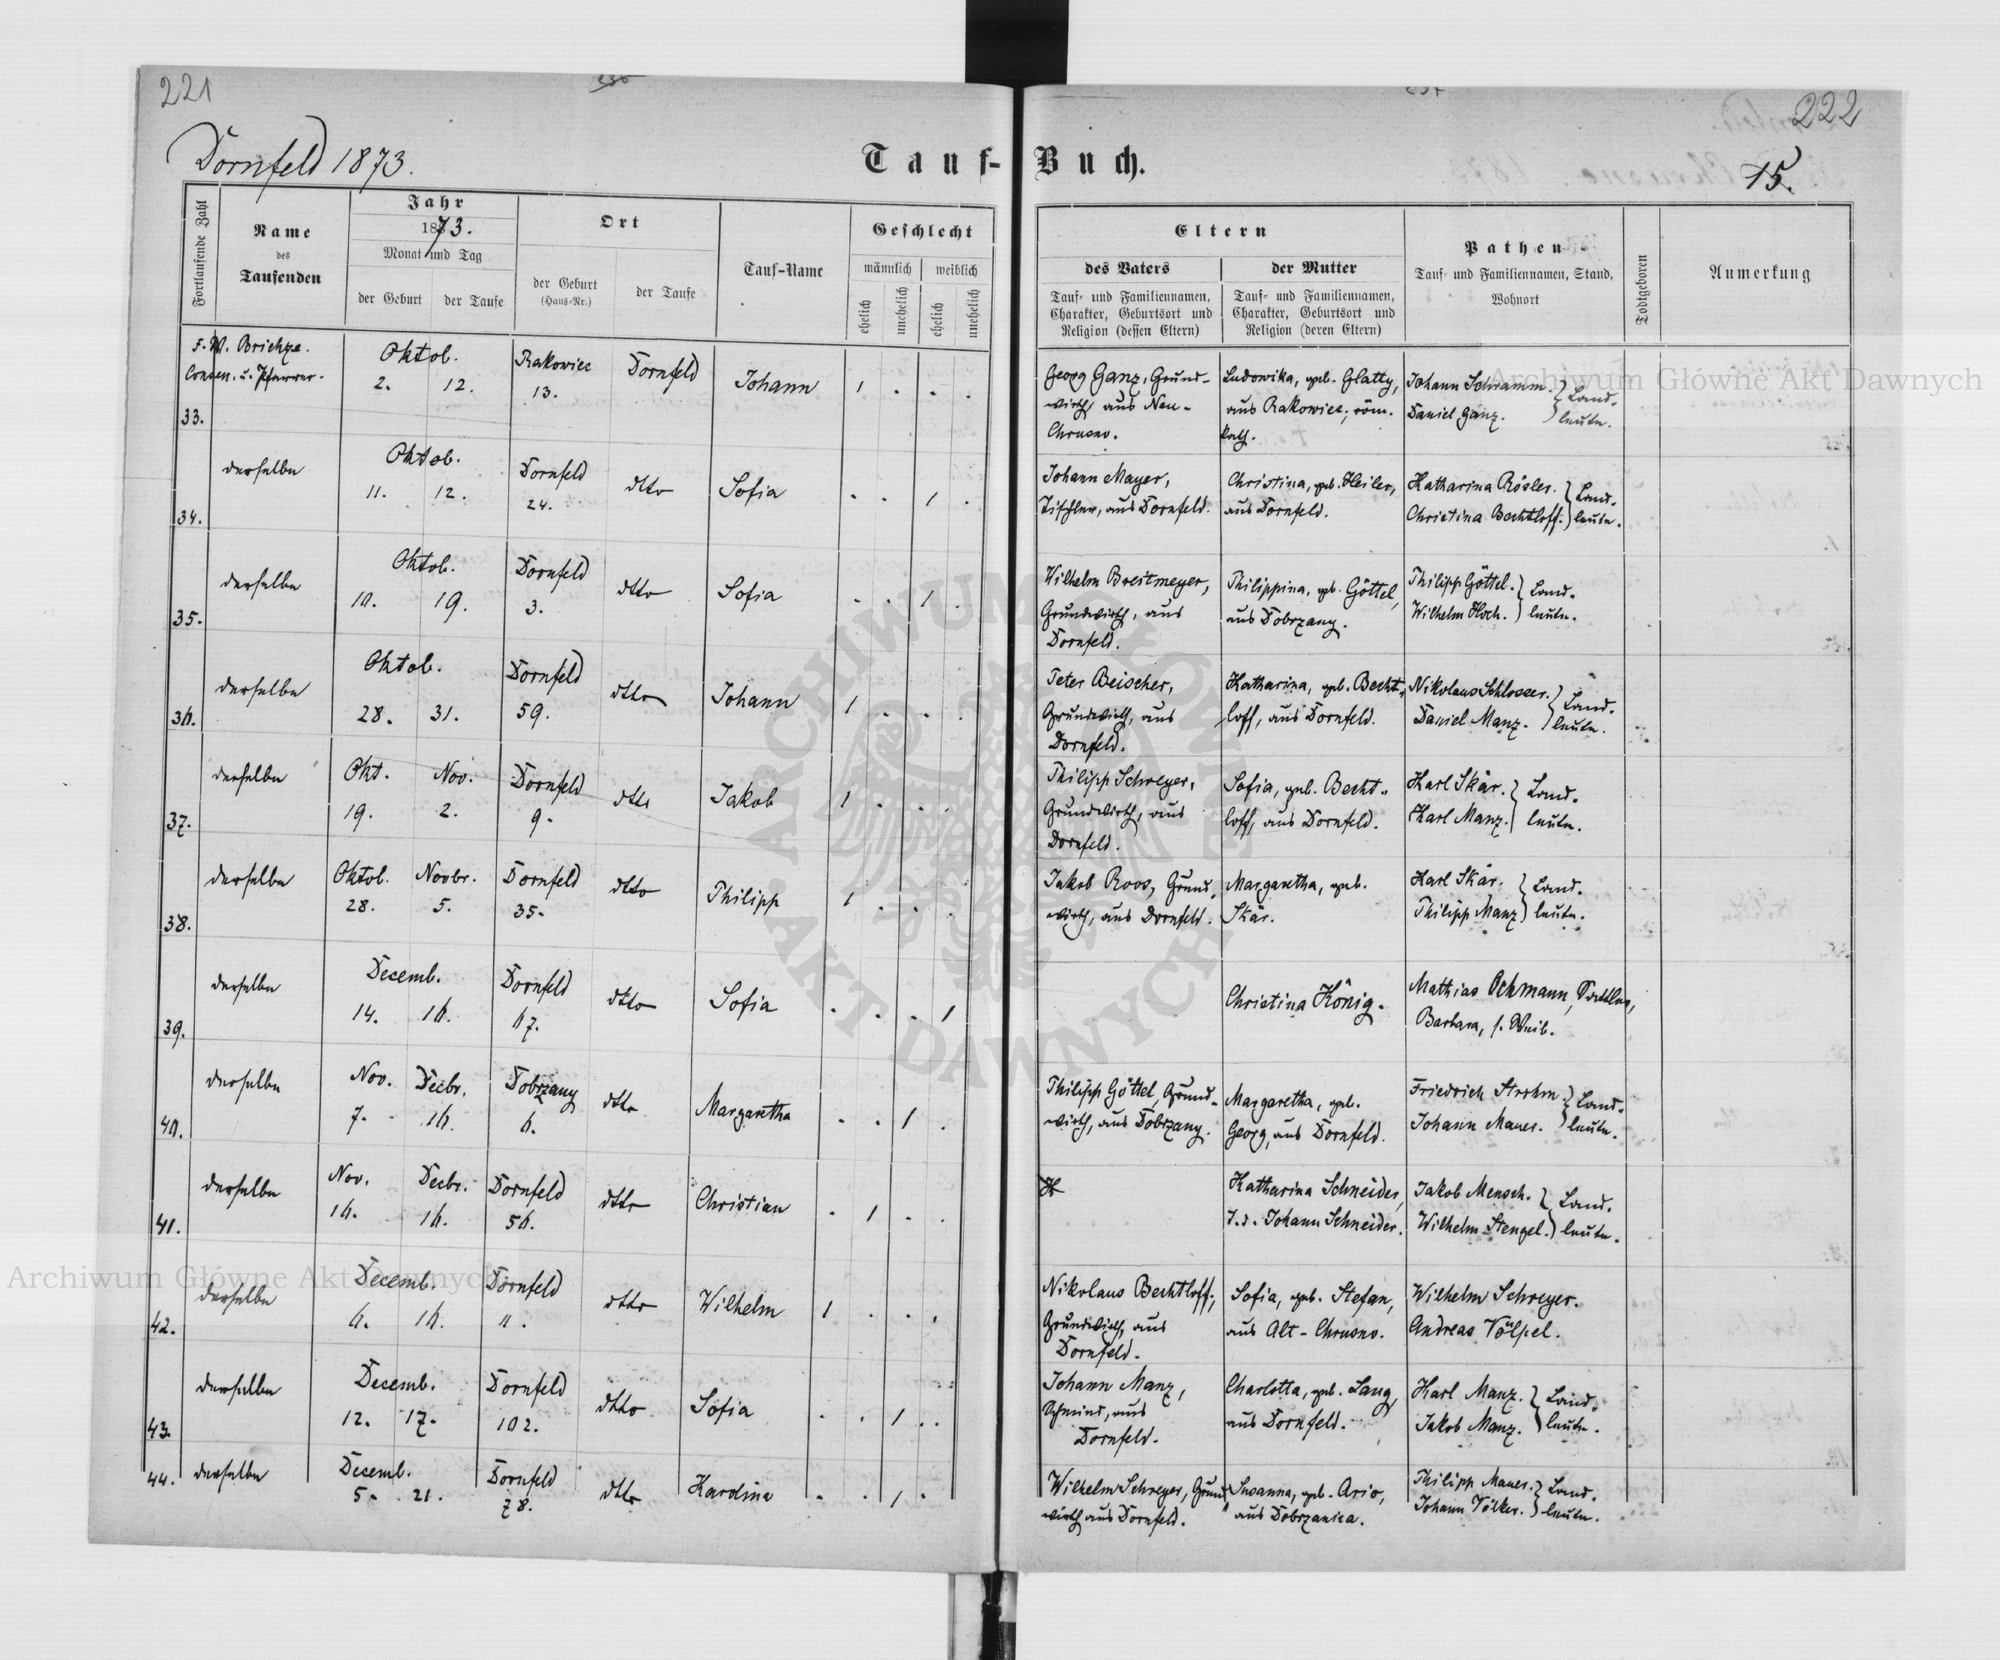 221
222
Dornfeld 1873.
Tauf-Buch.
15.
Fortlaufende Zahl
Name
des
Taufenden
Jahr
1873.
Monat und Tag
der Geburt
der Taufe
Ort
der Geburt
(Haus-Nr.)
der Taufe
Tauf-Name
Geschlecht
männlich
weiblich
ehelich
unehelich
ehelich
unehelich
Eltern
des Vaters
Tauf- und Familiennamen,
Charakter, Geburtsort und
Religion (dessen Eltern)
der Mutter
Tauf- und Familiennamen,
Charakter, Geburtsort und
Religion (deren Eltern)
Pathen
Tauf- und Familiennamen, Stand,
Wohnort
Todtgeboren
Anmerkung
33. Oktob. Rakowiec Dornfeld Johann 1 . . .
2. 12. 13.
u. Pfarrer.
Georg Ganz, Grund-
wirth, aus Neu-
Chrusno.
Ludowika, geb. Glatty,
aus Rakowiec, röm.
kath.
Johann Schramm.
Daniel Ganz.
} Land-
leute.
34. derselbe Oktob. Dornfeld dtto Sofia . . 1 .
11. 12. 24.
Johann Mayer,
Tischler, aus Dornfeld.
Christina, geb. Heiler,
aus Dornfeld.
Katharina Rösler.
Christina Bechtloff.
} Land-
leute.
35. derselbe Oktob. Dornfeld dtto Sofia . . 1 .
10. 19. 3.
Wilhelm Breitmeyer,
Grundwirth, aus
Dornfeld.
Philippina, geb. Göttel,
aus Dobrzany.
Philipp Göttel.
Wilhelm Koch.
} Land-
leute.
36. derselbe Oktob. Dornfeld dtto Johann 1 . . .
28. 31. 59.
Peter Beischer,
Grundwirth, aus
Dornfeld.
Katharina, geb. Becht-
loff, aus Dornfeld.
Nikolaus Schlosser.
Daniel Manz.
} Land-
leute.
37. derselbe Okt. Nov. Dornfeld dtto Jakob 1 . . .
19. 2. 9.
Philipp Schreyer,
Grundwirth, aus
Dornfeld.
Sofia, geb. Becht-
loff, aus Dornfeld.
Karl Skär.
Karl Manz.
} Land-
leute.
38. derselbe Oktob. Novbr. Dornfeld dtto Philipp 1 . . .
28. 5. 35.
Jakob Roos, Grund-
wirth, aus Dornfeld.
Margaretha, geb.
Skär.
Karl Skär.
Philipp Manz
} Land-
leute.
39. derselbe Decemb. Dornfeld dtto Sofia . . . 1
14. 16. 67.
Christina König.
Mathias Ochmann,
Barbara, s. Weib.
40. derselbe Nov. Decbr. Dobrzany dtto Margaretha . . 1 .
7. 16. 6.
Philipp Göttel, Grund-
wirth, aus Dobrzany.
Margaretha, geb.
Georg, aus Dornfeld.
Friedrich Strohm.
Johann Mauer.
} Land-
leute.
41. derselbe Nov. Decbr. Dornfeld dtto Christian . 1 . .
16. 16. 56.
Katharina Schneider,
T. d. Johann Schneider.
Jakob Mensch.
Wilhelm Stengel.
} Land-
leute.
42. derselbe Decemb. Dornfeld dtto Wilhelm 1 . . .
6. 16. 11.
Nikolaus Bechtloff,
Grundwirth, aus
Dornfeld.
Sofia, geb. Stefan,
aus Alt-Chrusno.
Wilhelm Schreyer.
Andreas Völpel.
43. derselbe Decemb. Dornfeld dtto Sofia . . 1 .
12. 17. 102.
Johann Manz,
Schmied, aus
Dornfeld.
Charlotta, geb. Lang,
aus Dornfeld.
Karl Manz.
Jakob Manz.
} Land-
leute.
44. derselbe Decemb. Dornfeld dtto . . 1 .
5. 21. 78.
Wilhelm Schreyer, Grund-
wirth aus Dornfeld.
Susanna, geb. Ario,
aus Dobrzanica.
Philipp Mauer.
Johann Völker.
} Land-
leute.
Archiwum Główne Akt Dawnych
Archiwum Główne Akt Dawnych
ARCHIWUM GŁÓWNE AKT DAWNYCH